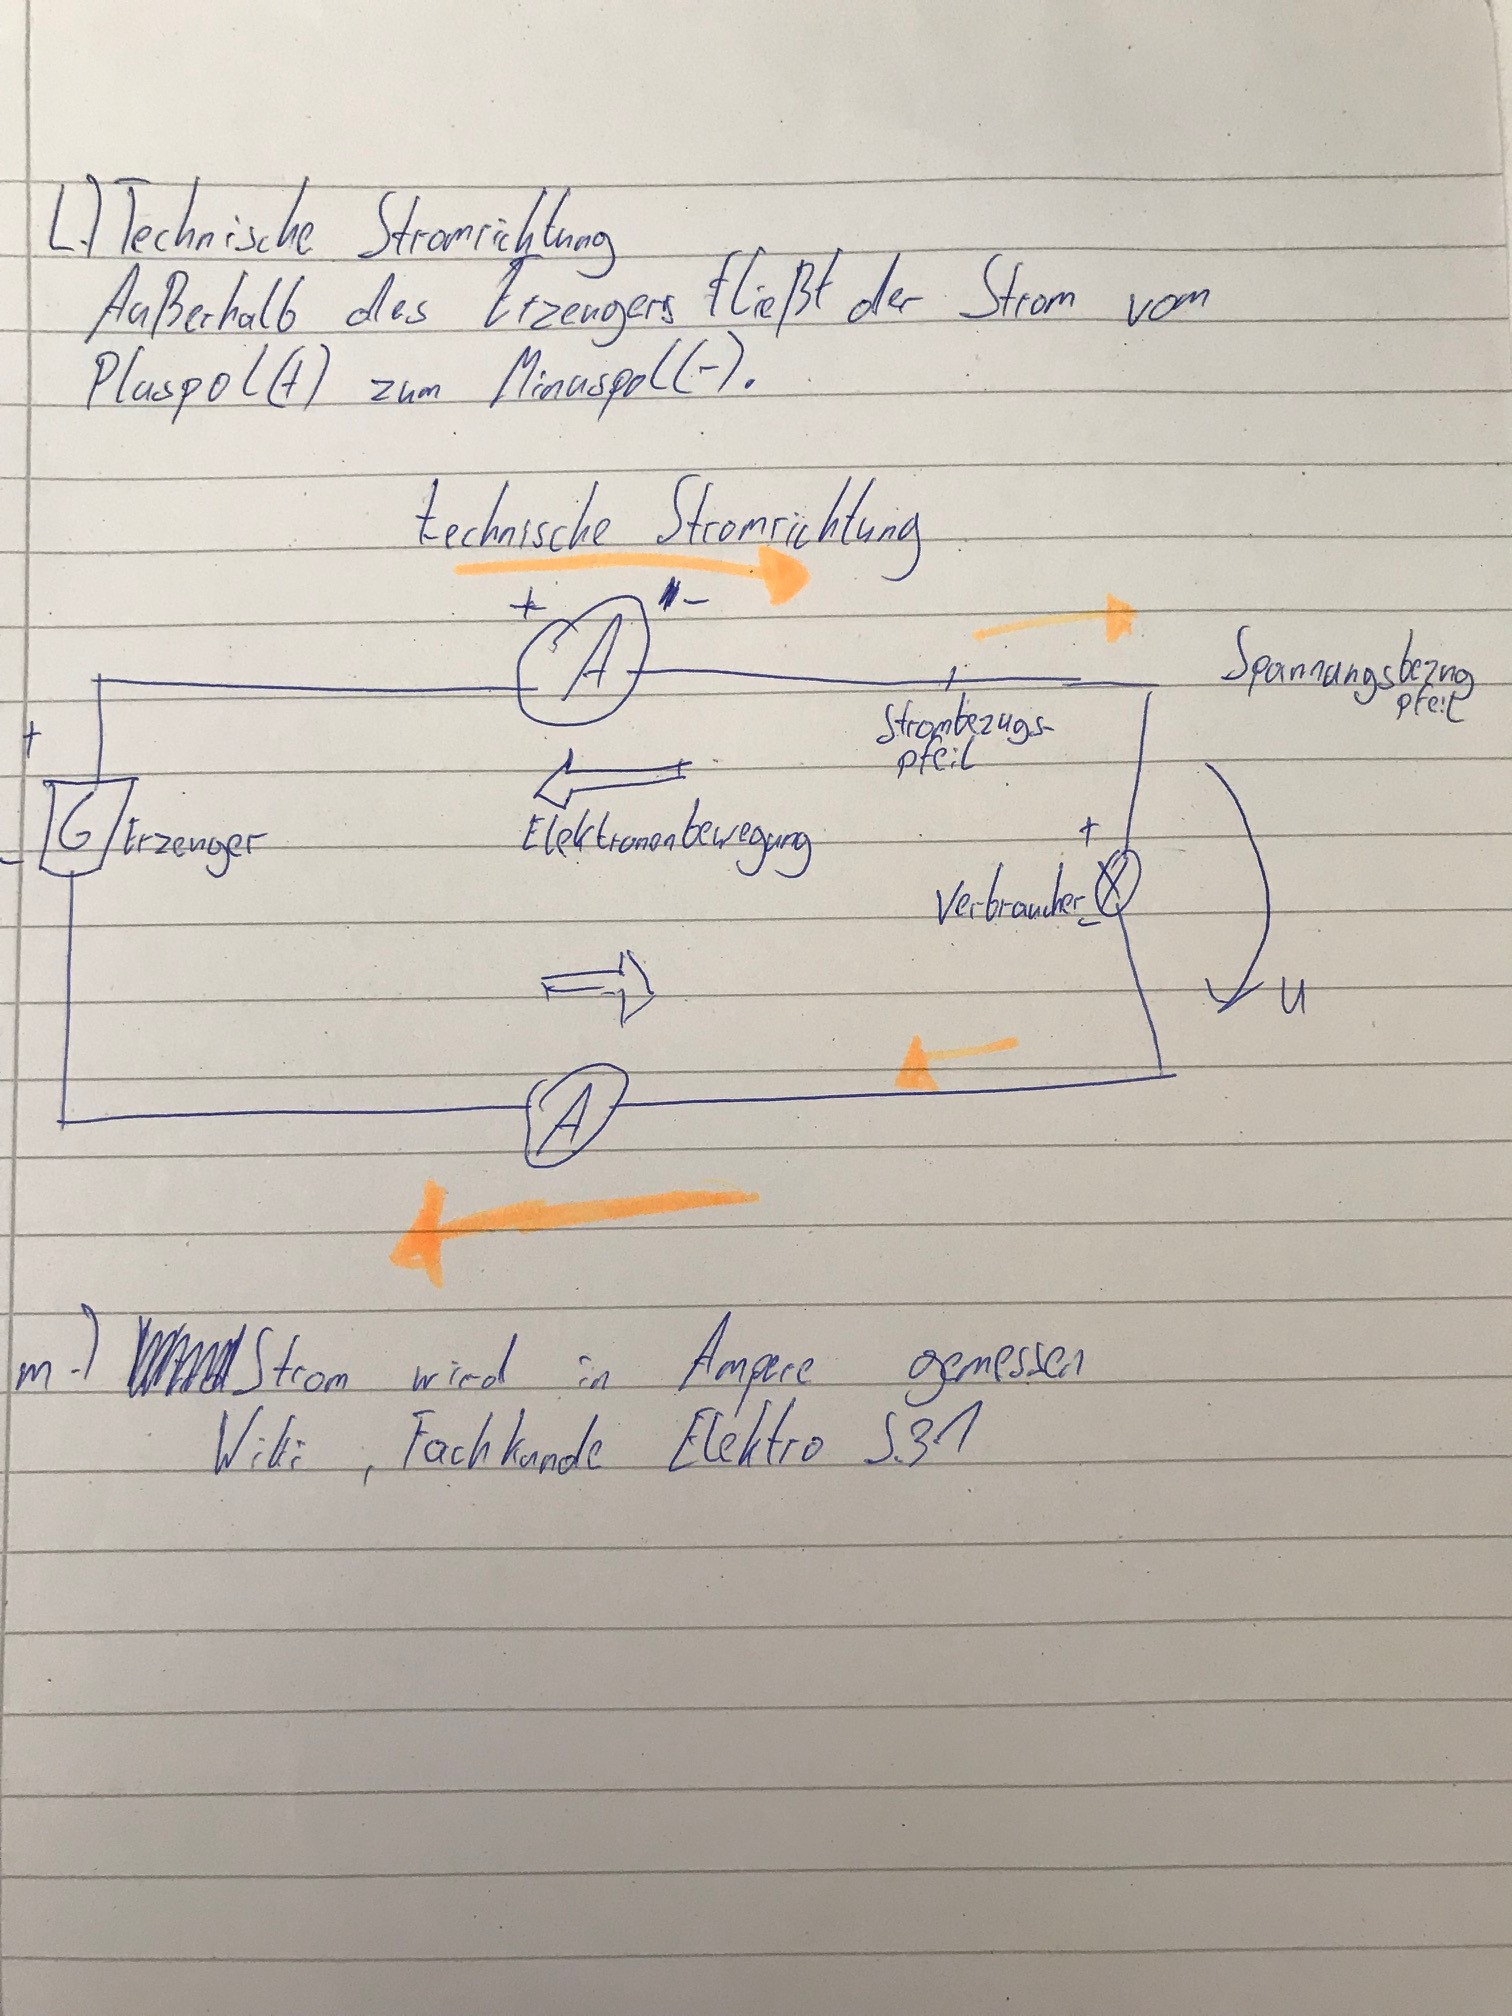 L.) Technische Stromrichtung
Außerhalb des Erzeugers fließt der Strom vom
Pluspol(+) zum Minuspol(-).
technische Stromrichtung
+ -
A
Spannungsbezug
pfeil
Strombezugs-
pfeil
+
G Erzeuger
-
Elektronenbewegung
+
Verbraucher
-
U
A
m.) Strom wird in Ampere gemessen
Wiki, Fachkunde Elektro S.31